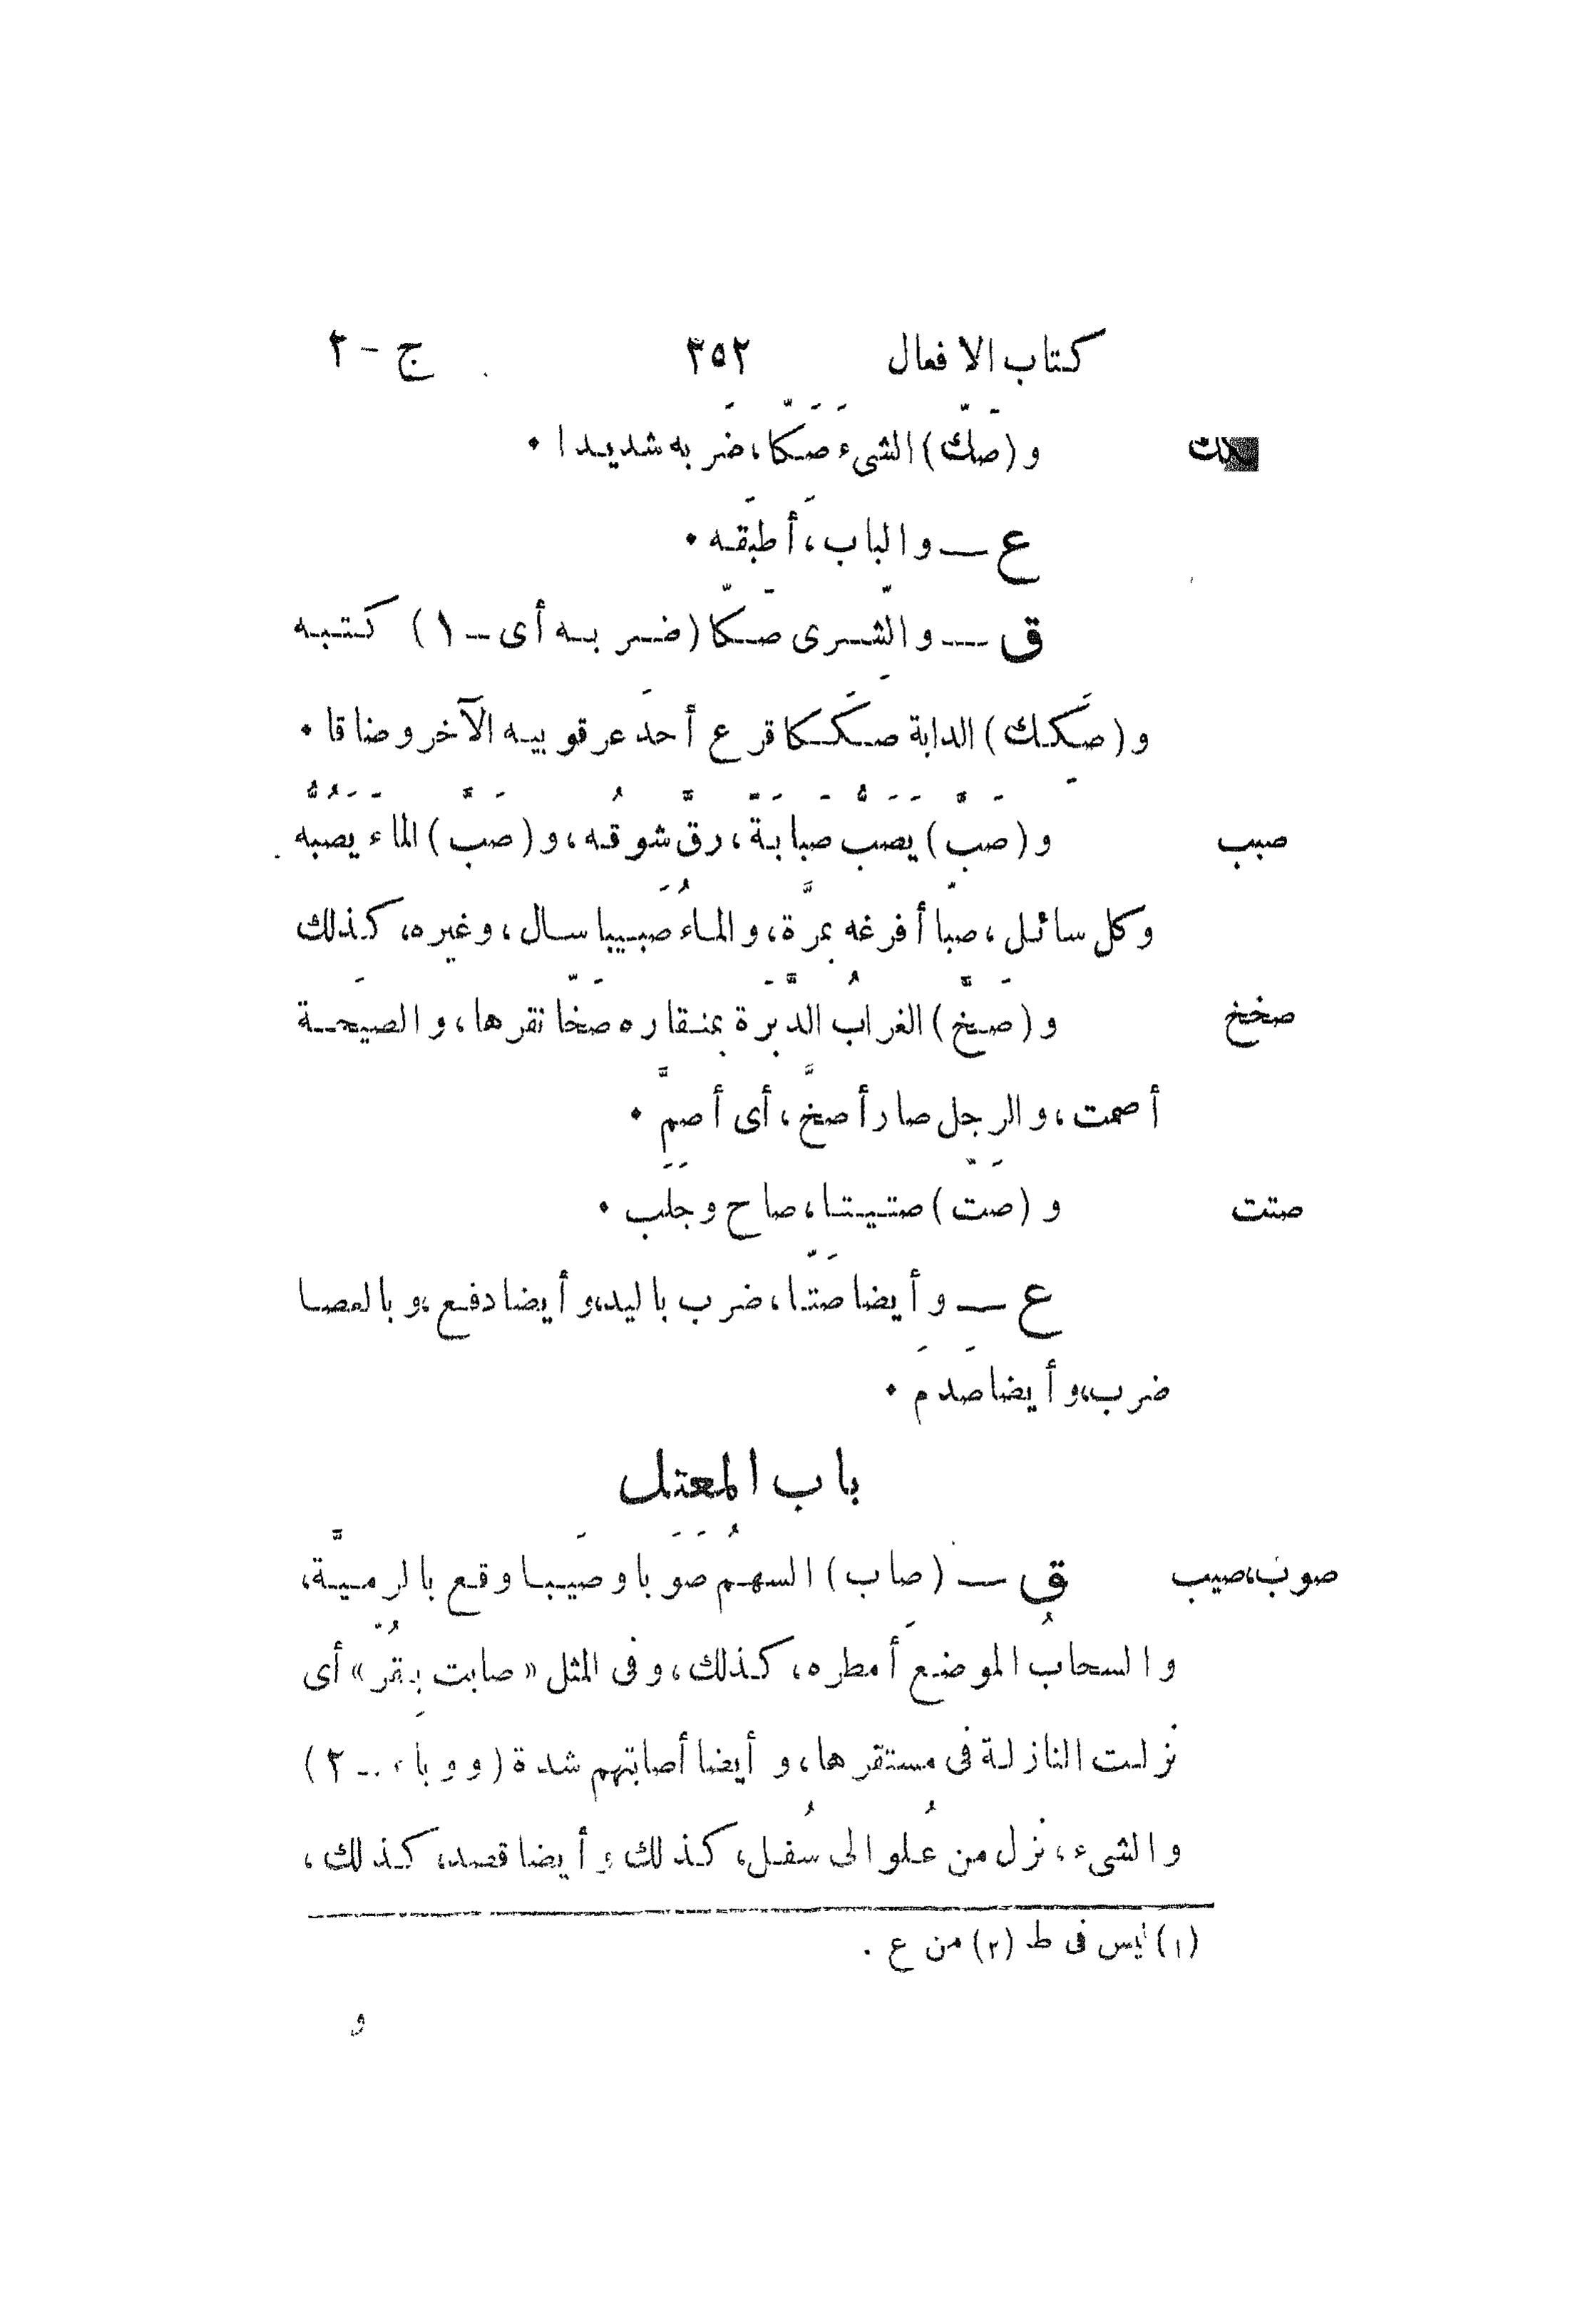 كتاب الافعال ٣٥٢ ج - ٢
و (صَكّ) الشىء صَكّا، ضَربه شديدا ٠
ع — والباب، أَطبَقه ٠
ق — والشّرِى صَكّا (ضربه أى - ١) كتبه
و (صَكِك) الدابة صكَكا قرع أحدَ عرقوبيه الآخر وضاقا ٠
صبب و (صَبَّ) يَصَبُّ صَبابَةً، رقَّ شوقُه، و (صَبَّ) الماء يَصُبُّه
وكل سائل، صبّا أفرغه بمرَّة، والماءُ صَبيبا سال، وغيره، كذلك
صخخ و (صَخَّ) الغرابُ الدَّبَرة بمنقاره صَخّا نقرها، والصيَحة
أصمت، والرجل صار أصخَّ، أى أصمَّ ٠
صتت و (صَتّ) صتيتا، صاح وجَلَب ٠
ع — وأيضا صَتّا، ضرب باليد، وأيضا دفع، وبالعصا
ضرب، وأيضا صَدَم ٠
باب المعتل
صوب، صيب ق — (صاب) السهمُ صَوبا وصَيبا وقع بالرميَّة،
والسحابُ الموضعَ أمطره، كذلك، وفى المثل «صابت بِقُرّ» أى
نزلت النازلة فى مستقرها، وأيضا أصابتهم شدة (ووباء - ٢)
والشىء، نزل من عُلو الى سُفل، كذلك وأيضا قصد، كذلك،
(١) ليس فى ط (٢) من ع .
و